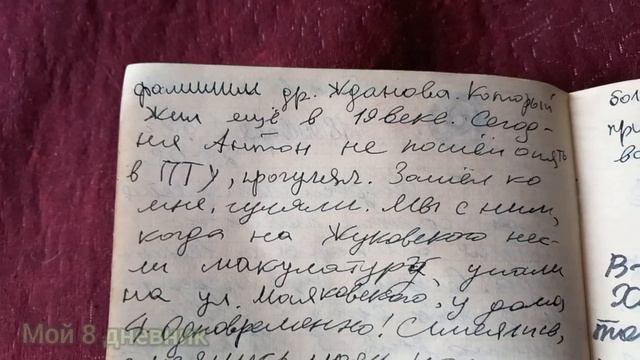 фамилии др. Жданова. Который
жил ещё в 19 веке. Сегод-
ня Антон не пошёл опять
в ПТУ, прогулял. Зашёл ко
мне, гуляли. Мы с ним,
когда на Жуковского нес-
ли макулатуру, упали
на ул. Маяковского, у дома
4. Одновременно! Смеялись,
бол
при
во
В-
Х
та
Мой 8 дневник